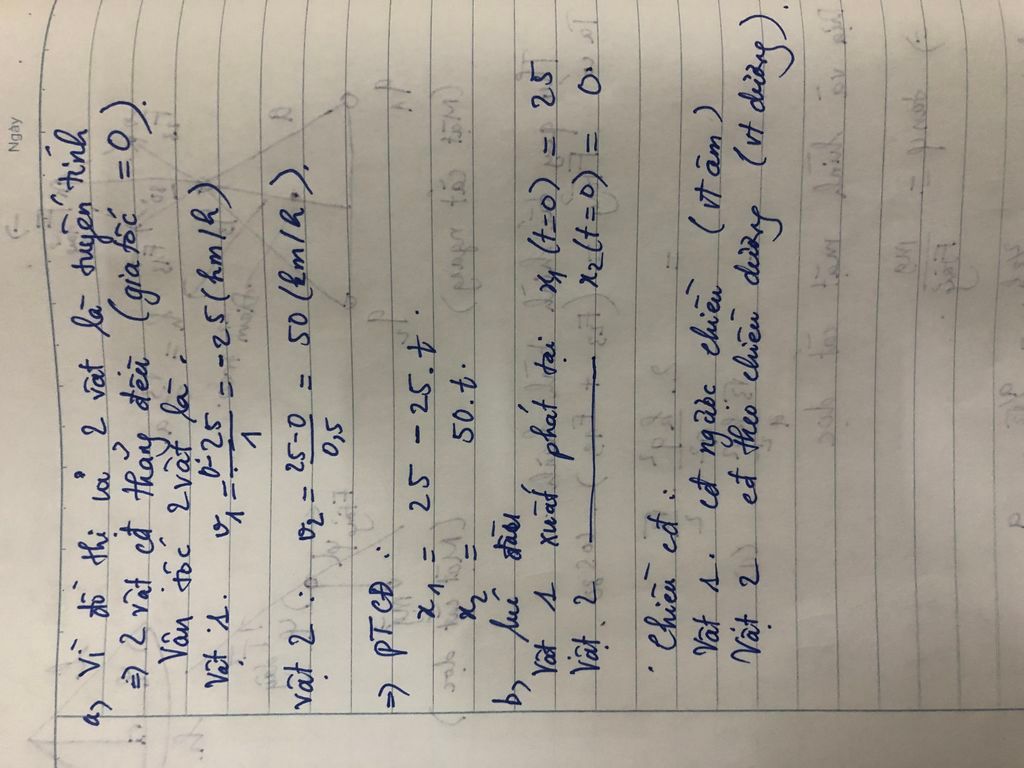 Ngày
a, Vì đồ thị củ 2 vật là tuyến tính
=> 2 vật cđ thẳng đều (gia tốc = 0).
Vận tốc 2 vật là:
Vật 1. v₁ = (0-25)/1 = -25 (km/h)
Vật 2: v₂ = (25-0)/0,5 = 50 (km/h).
=> PTCĐ:
x₁ = 25 - 25.t.
x₂ = 50.t.
b, Lúc đầu
Vật 1 xuất phát tại x₁ (t=0) = 25
Vật 2 ——— x₂ (t=0) = 0.
Chiều cđ:
Vật 1. cđ ngược chiều (vt âm)
Vật 2 cđ theo chiều dương (vt dương).